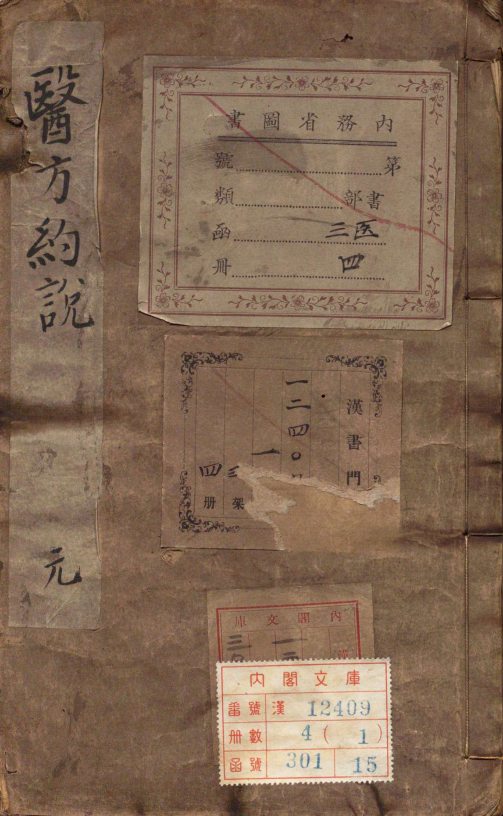 醫方約說
元
內務省圖書
第號
書部類
医三函
四冊
漢書門
一二四〇
一
三架
四册
內閣文庫
内閣文庫
番號 漢 12409
册數 4 ( 1 )
函號 301 15